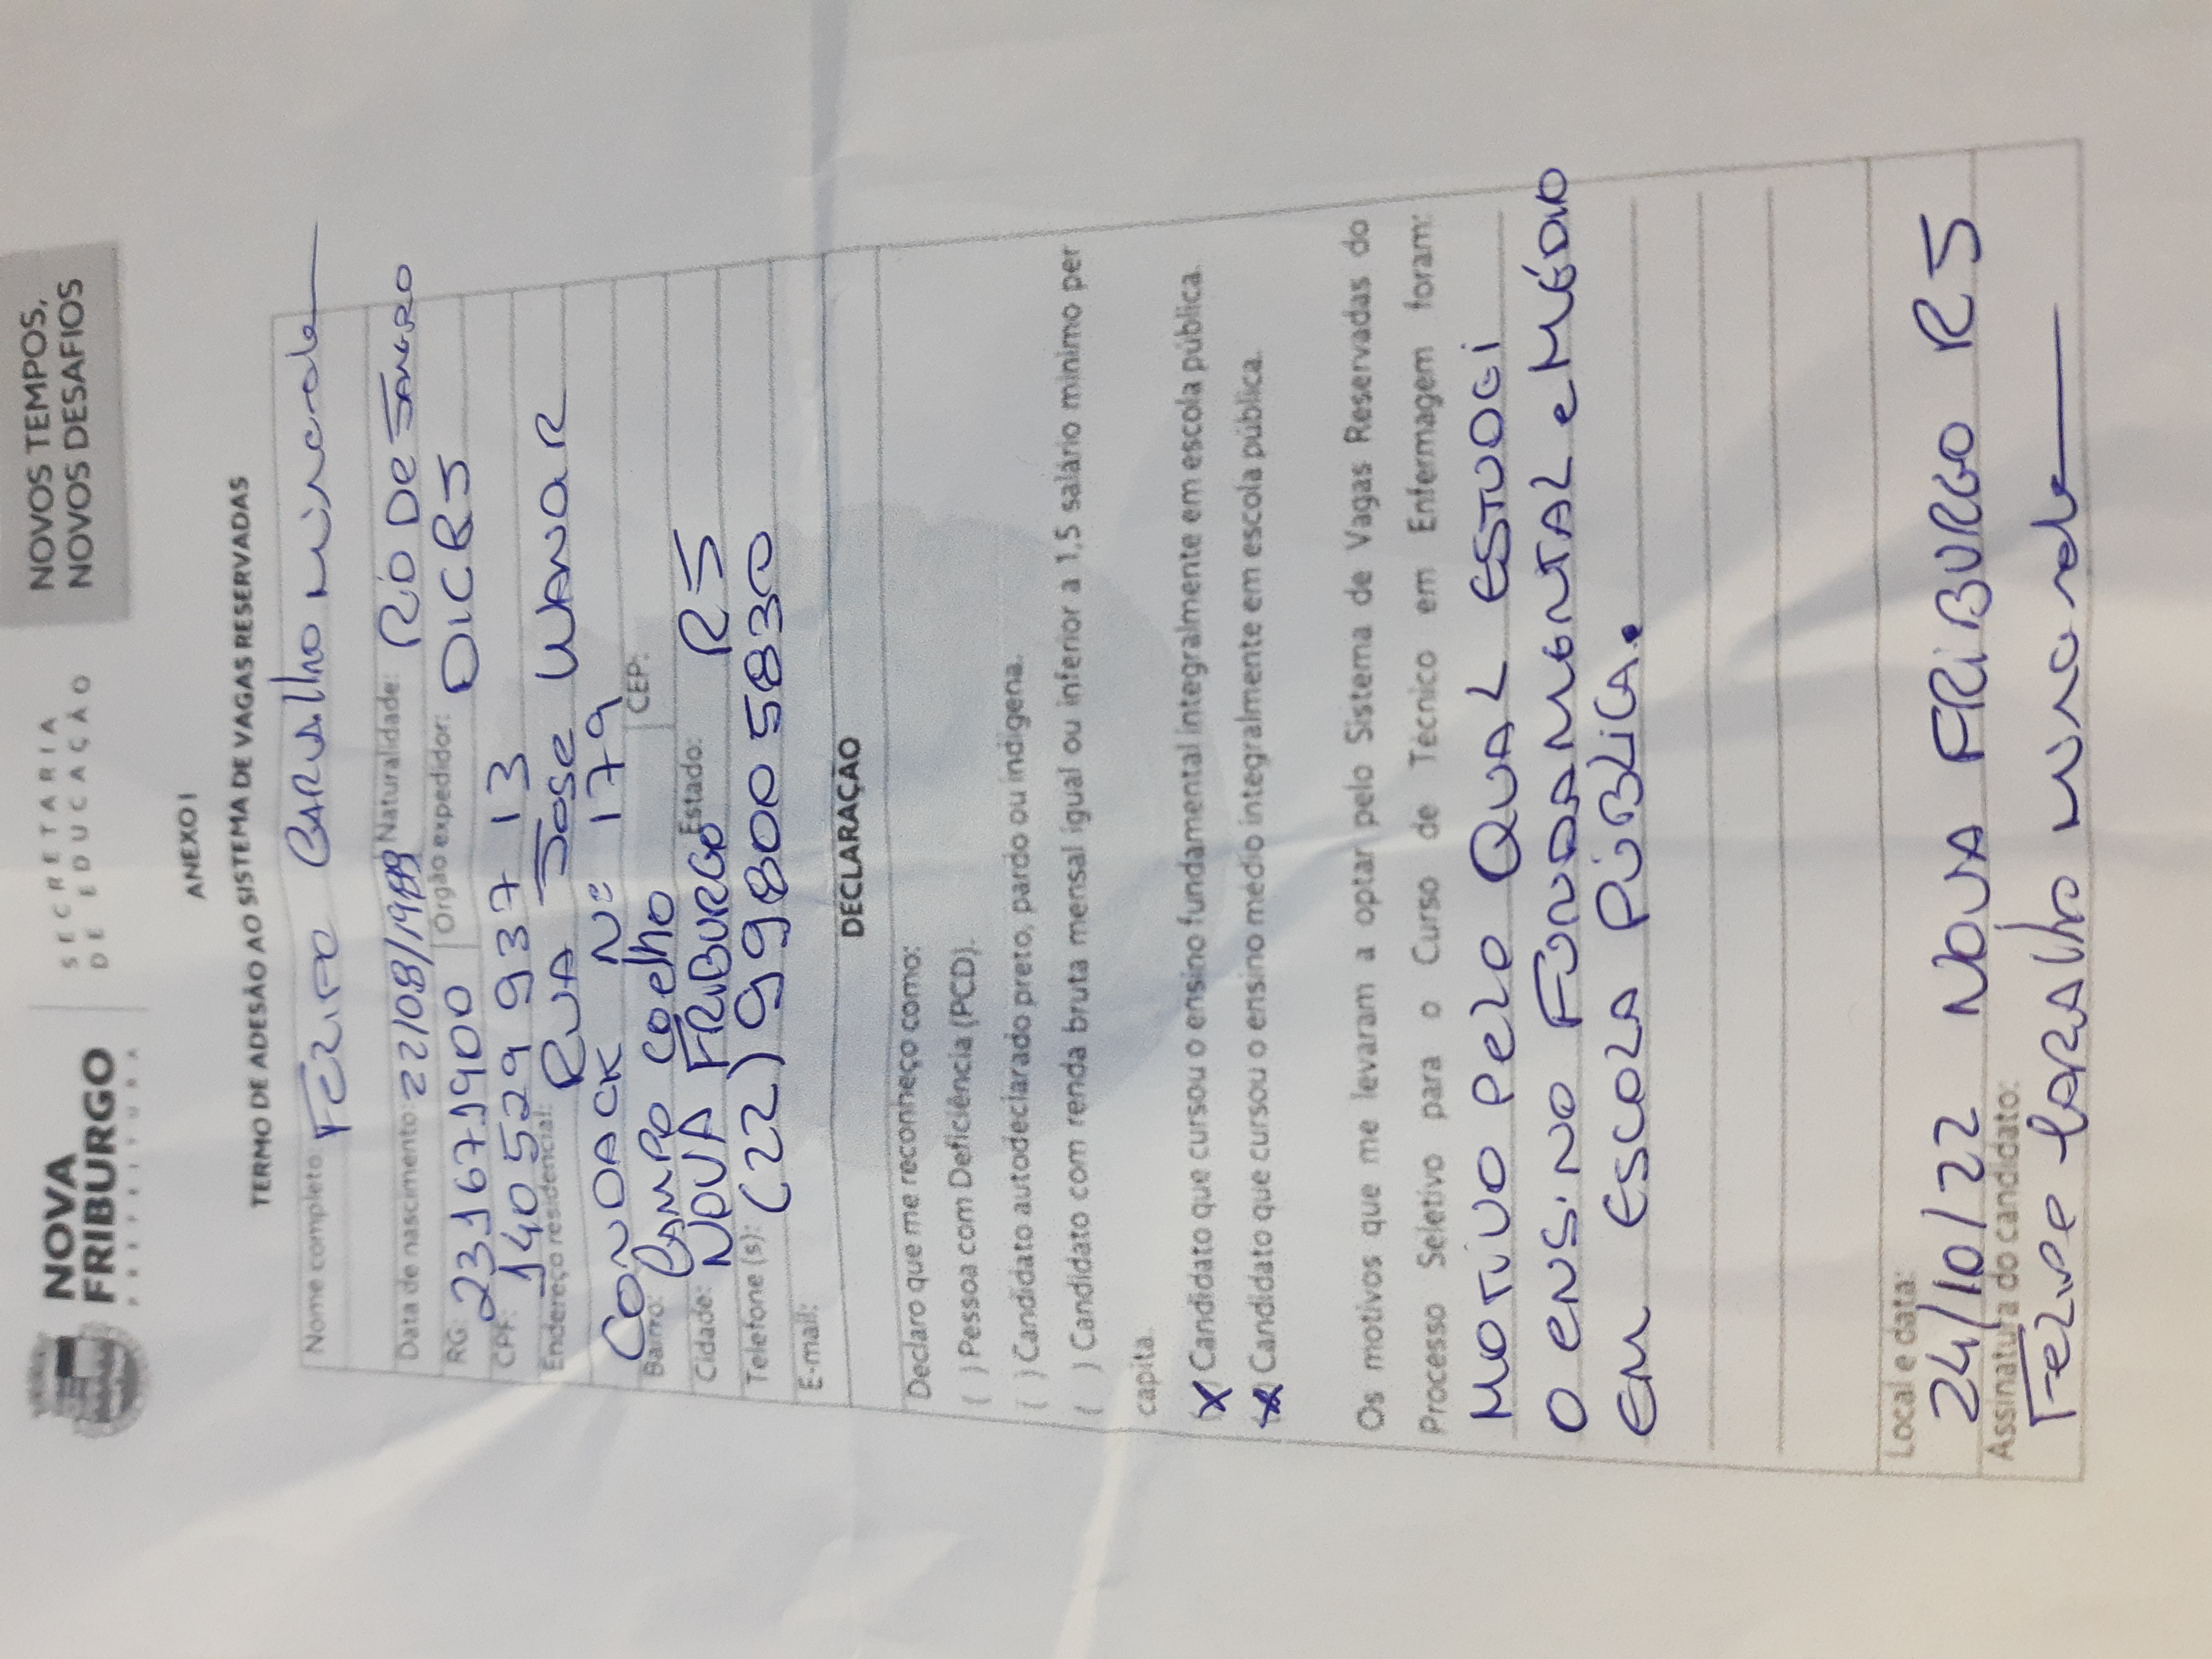 NOVA
FRIBURGO
PREFEITURA
SECRETARIA
DE EDUCAÇÃO
NOVOS TEMPOS,
NOVOS DESAFIOS
ANEXO I
TERMO DE ADESÃO AO SISTEMA DE VAGAS RESERVADAS
Nome completo: FELIPE CARVALHO MIRANDA
Data de nascimento: 22/08/1989 Naturalidade: RIO DE JANEIRO
RG: 231671900 Órgão expedidor: DICRJ
CPF: 140 529 937 13
Endereço residencial: RUA JOSE WANOR
CONDACK Nº 179
Bairro: CAMPO COELHO CEP:
Cidade: NOVA FRIBURGO Estado: RJ
Telefone (s): (22) 998005830
E-mail:
DECLARAÇÃO
Declaro que me reconheço como:
( ) Pessoa com Deficiência (PCD).
( ) Candidato autodeclarado preto, pardo ou indígena.
( ) Candidato com renda bruta mensal igual ou inferior a 1,5 salário mínimo per
capita.
(X) Candidato que cursou o ensino fundamental integralmente em escola pública.
(X) Candidato que cursou o ensino médio integralmente em escola pública.
Os motivos que me levaram a optar pelo Sistema de Vagas Reservadas do
Processo Seletivo para o Curso de Técnico em Enfermagem foram:
MOTIVO PELO QUAL ESTUDEI
O ENSINO FUNDAMENTAL e MÉDIO
EM ESCOLA PÚBLICA.
Local e data:
24/10/22 NOVA FRIBURGO RJ
Assinatura do candidato:
FELIPE CARVALHO MIRANDA